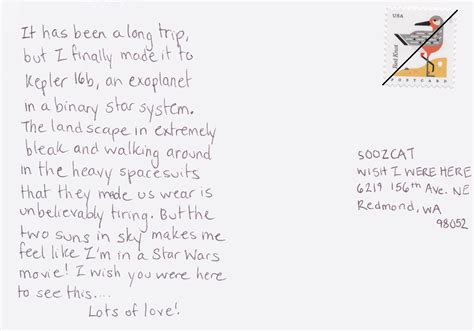 It has been a long trip,
but I finally made it to
Kepler 16b, an exoplanet
in a binary star system.
The landscape in extremely
bleak and walking around
in the heavy spacesuits
that they made us wear is
unbelievably tiring. But the
two suns in sky makes me
feel like I'm in a Star Wars
movie! I wish you were here
to see this....
Lots of love!
USA
Red Knot
POSTCARD
SOOZCAT
WISH I WERE HERE
6219 156th Ave. NE
Redmond, WA
98052